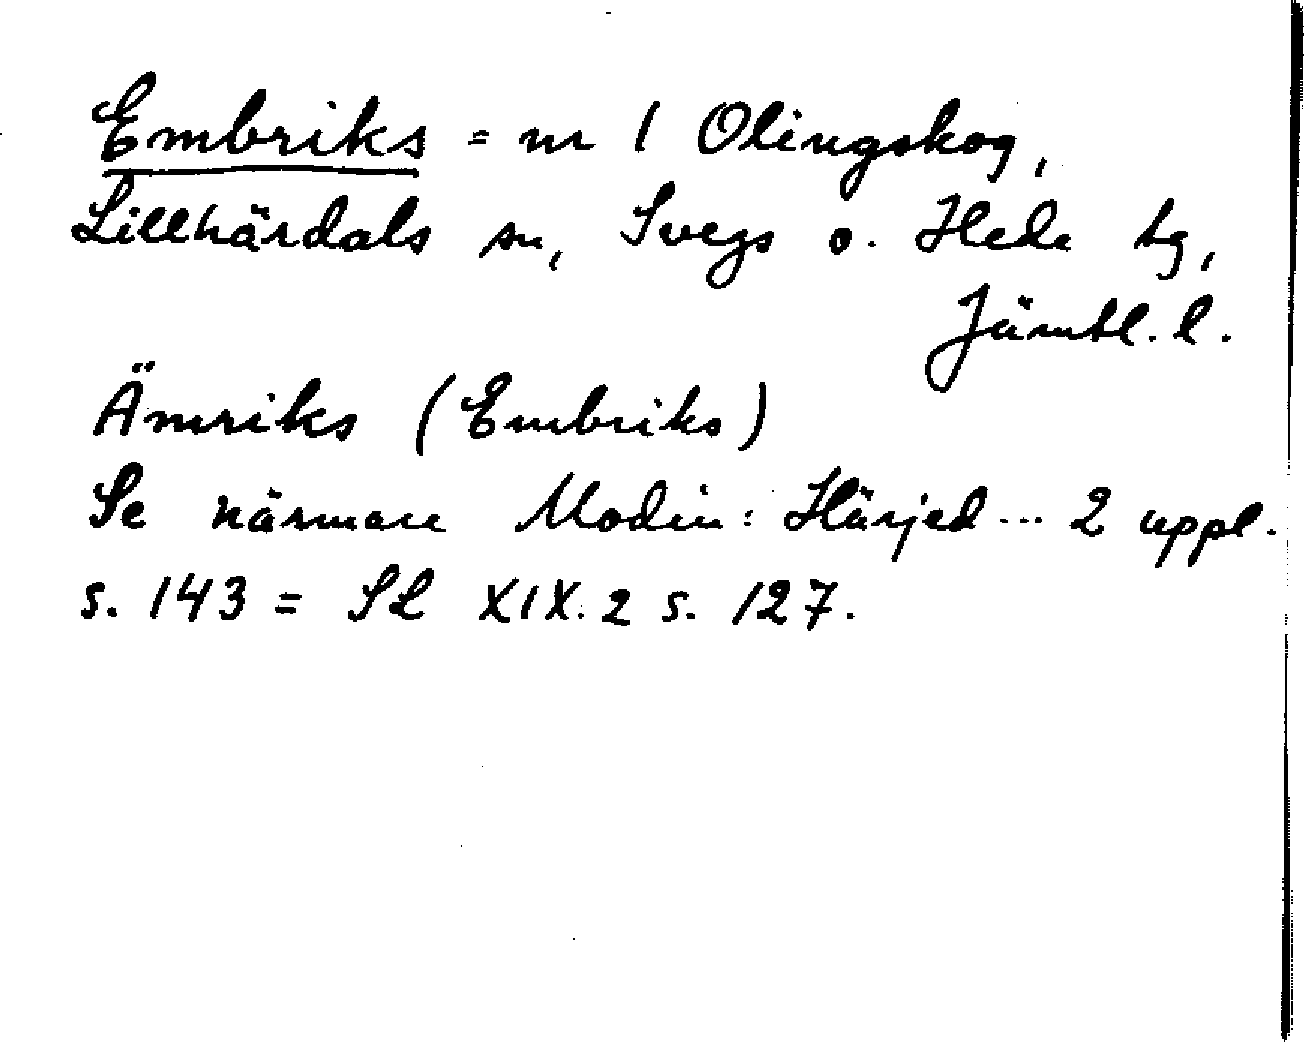 Embriks = nr 1 Olingskog,
Lillhärdals sn, Svegs o. Hede tg,
Jämtl. l.
Ämriks (Embriks)
Se närmare Modin: Härjed... 2 uppl.
s. 143 = SL XIX. 2 s. 127.